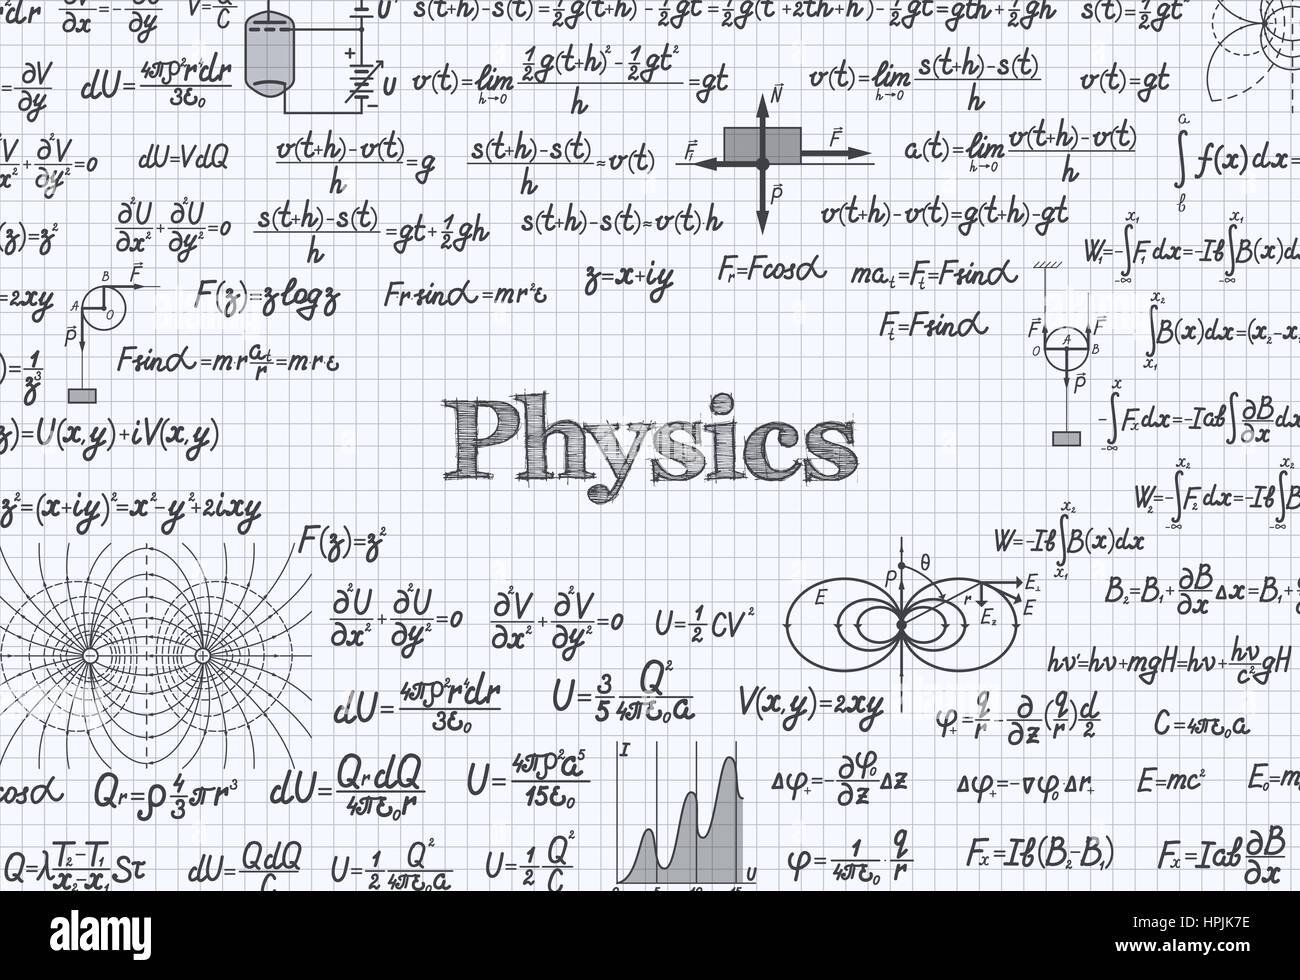 s(t+h)-s(t)=½g(t+h)²-½gt²=½g(t²+2th+h²)-½gt²=gth+½gh² s(t)=½gt²
=∂V/∂y dU=4πρ²r⁴dr/3ε₀ + U - v(t)=lim h→0 (½g(t+h)²-½gt²)/h=gt v(t)=lim h→0 (s(t+h)-s(t))/h v(t)=gt
+∂²V/∂y²=0 dU=VdQ (v(t+h)-v(t))/h=g (s(t+h)-s(t))/h≈v(t) N F F P a(t)=lim h→0 (v(t+h)-v(t))/h ∫ a b f(x)dx=
(z)=z² ∂²U/∂x²+∂²U/∂y²=0 (s(t+h)-s(t))/h=gt+½gh s(t+h)-s(t)≈v(t)·h v(t+h)-v(t)=g(t+h)-gt
W₁=-∫ x₁ -∞ F₁dx=-Ib∫ x₁ -∞ B(x)d
=2xy A B O F P F(z)=z log z Fr sinα=mr²ε z=x+iy Fᵣ=Fcosα maₜ=Fₜ=Fsinα
Fₜ=Fsinα F F O A B P ∫ x₂ x₁ B(x)dx=(x₂-x
)=1/z³ Fsinα=m·r aₜ/r=m·r·ε
z)=U(x,y)+iV(x,y) Physics -∫ x -∞ Fₓdx=-Iab∫∂B/∂x dx
z²=(x+iy)²=x²-y²+2ixy W₂=-∫ x₂ -∞ F₂dx=-Ib∫ x₂ -∞ B
F(z)=z² W=-Ib∫ x₂ x₁ B(x)dx
E P θ r E⊥ E₂ E B₂=B₁+∂B/∂x Δx=B₁+
∂²U/∂x²+∂²U/∂y²=0 ∂²V/∂x²+∂²V/∂y²=0 U=½CV²
hν'=hν+mgH=hν+hν/c² gH
dU=4πρ²r⁴dr/3ε₀ U=3/5 Q²/4πε₀a V(x,y)=2xy φ₊=q/r-∂/∂z(q/r)d/2 C=4πε₀a
cosα Qᵣ=ρ4/3πr³ dU=QᵣdQ/4πε₀r U=4πρ²a⁵/15ε₀ I 5 10 15 U Δφ₊=-∂φ₀/∂z Δz Δφ₊=-∇φ₀·Δr₊ E=mc² E₀=m
Q=λ(T₂-T₁)/(x₂-x₁) Sτ dU=QdQ/C U=½ Q²/4πε₀a U=½ Q²/C φ=1/4πε₀·q/r Fₓ=Ib(B₂-B₁) Fₓ=Iab ∂B/∂x
alamy
Image ID: HPJK7E
www.alamy.com